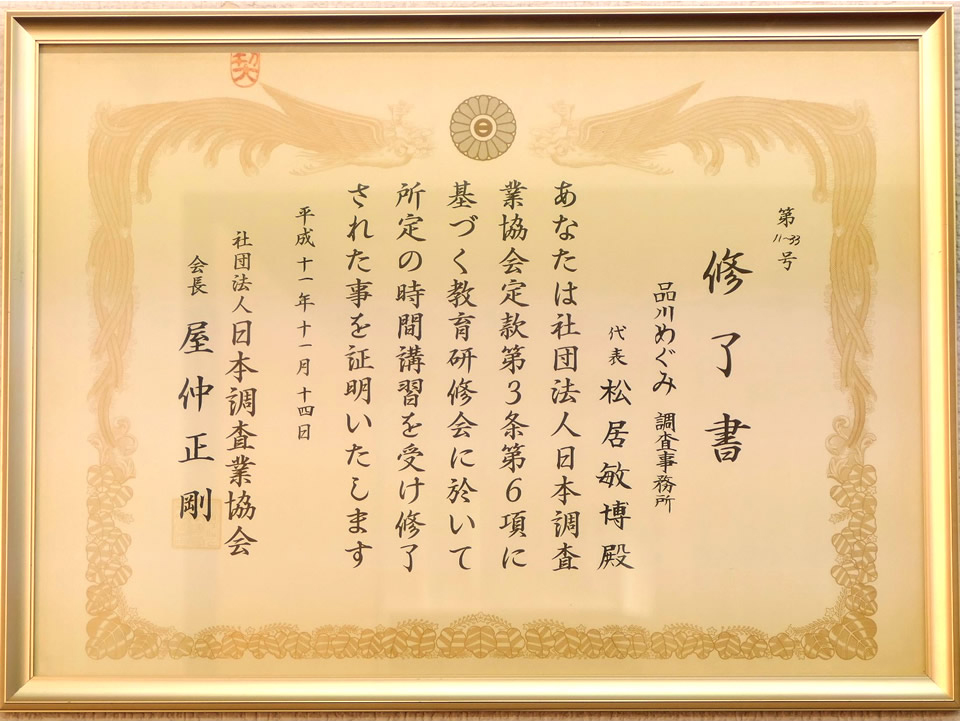 第11-33号
修了書
品川めぐみ調査事務所
代表 松居敏博殿
あなたは社団法人日本調査
業協会定款第3条第6項に
基づく教育研修会に於いて
所定の時間講習を受け修了
された事を証明いたします
平成十一年十一月十四日
社団法人日本調査業協会
会長 屋仲正剛